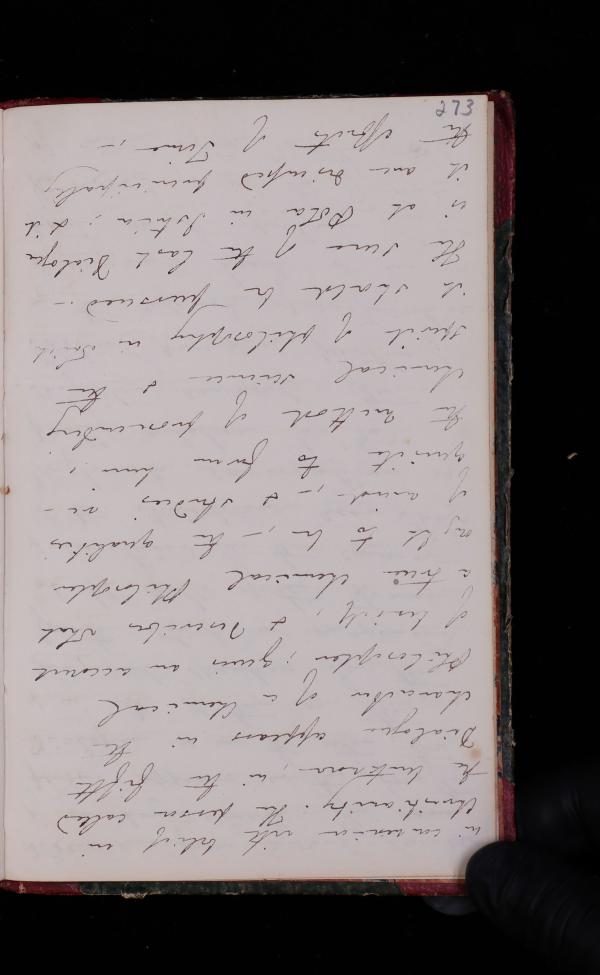 in connexion with belief in
Christianity. The person called
the Unknown, in the fifth
Dialogue appears in the
character of a chemical
Philosopher; gives an account
of himself, & describes what
a true chemical Philosopher
ought to be, – the qualities
of mind, – & studies re-
quisite to form him;
the method of prosecuting
chemical science & the
spirit of philosophy in which
it should be pursued. –
The scene of the last Dialogue
is at Pola in Istria; & in
it are discussed principally
the effects of Time. –
273